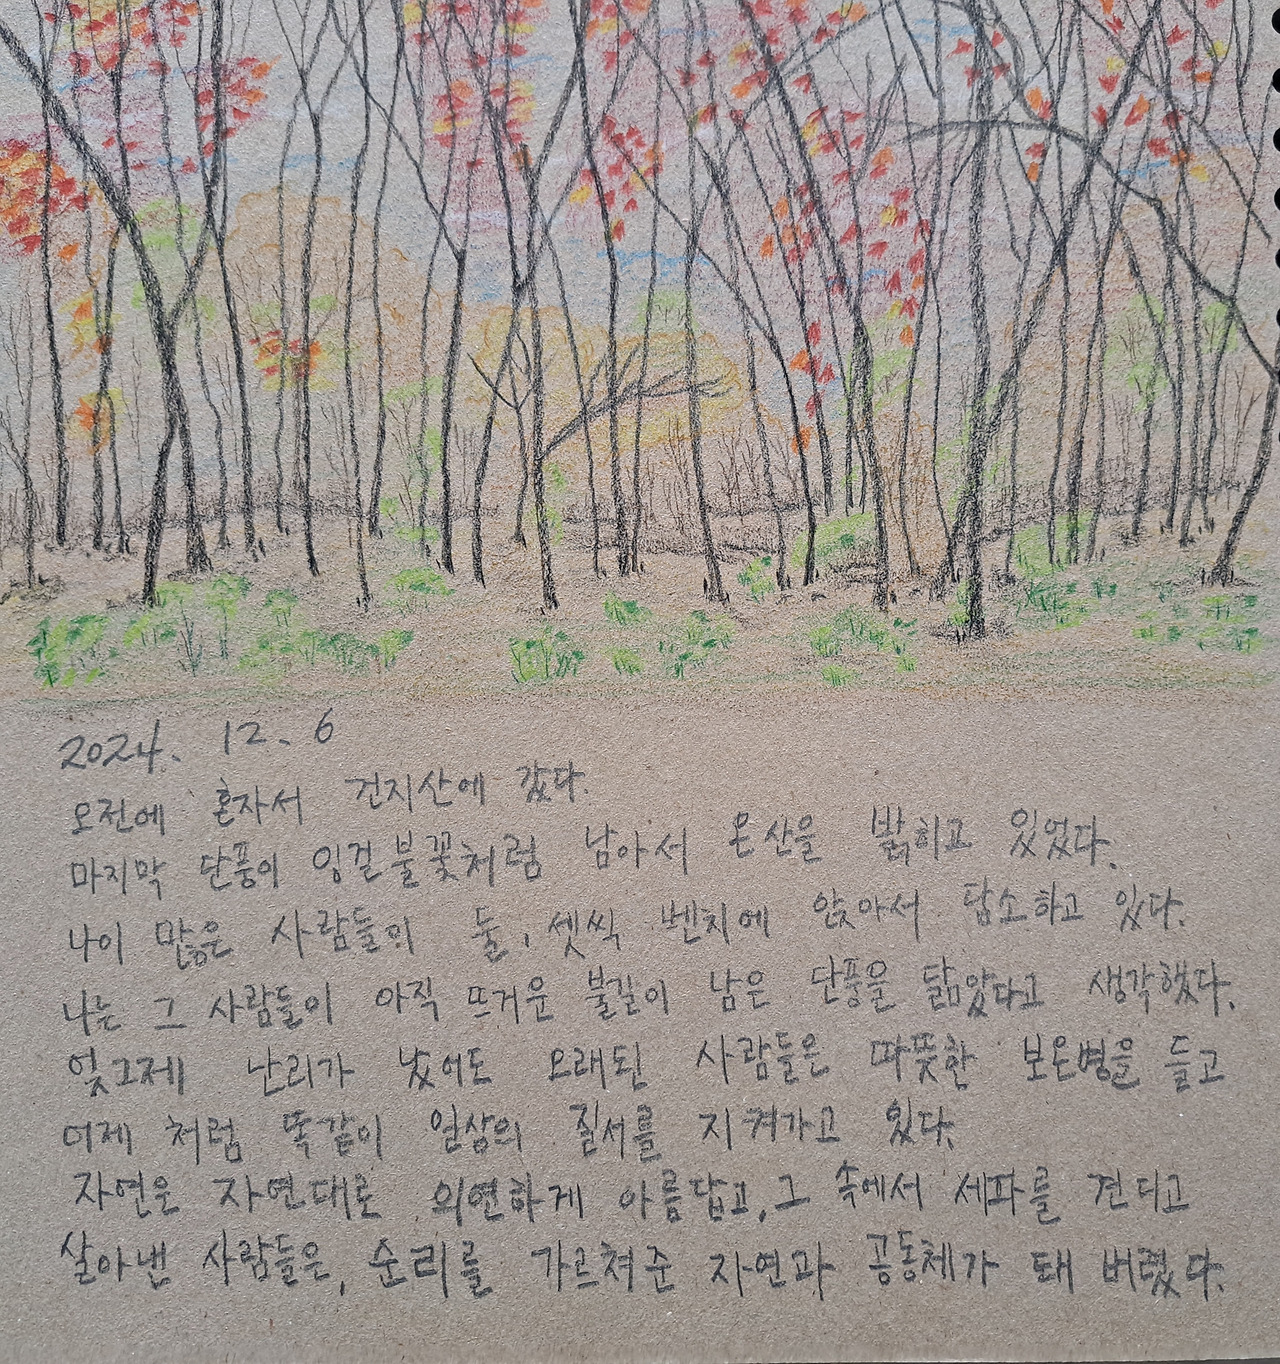 2024. 12. 6
오전에 혼자서 건지산에 갔다.
마지막 단풍이 잉걸불꽃처럼 남아서 온산을 밝히고 있었다.
나이 많은 사람들이 둘, 셋씩 벤치에 앉아서 담소하고 있다.
나는 그 사람들이 아직 뜨거운 불길이 남은 단풍을 닮았다고 생각했다.
엊그제 난리가 났어도 오래된 사람들은 따뜻한 보온병을 들고
어제 처럼 똑같이 일상의 질서를 지켜가고 있다.
자연은 자연대로 의연하게 아름답고, 그 속에서 세파를 견디고
살아낸 사람들은, 순리를 가르쳐준 자연과 공동체가 돼 버렸다.